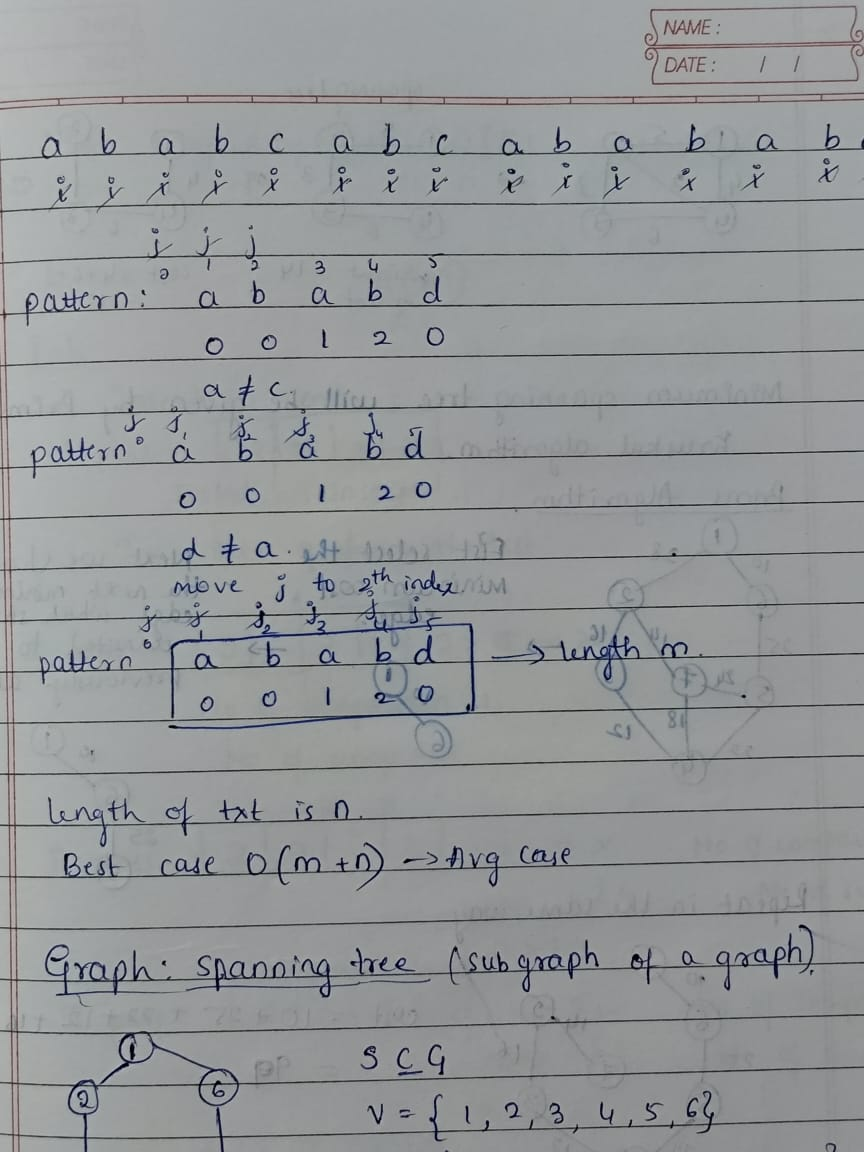 NAME :
DATE : / /
a b a b c a b c a b a b a b
i i i i i i i i i i i i i i
j j j
0 1 2 3 4 5
pattern: a b a b d
0 0 1 2 0
a ≠ c.
j j j j j
0 1 2 3 4 5
pattern a b a b d
0 0 1 2 0
d ≠ a.
move j to 2th index.
j j j j j j
0 1 2 3 4 5
pattern a b a b d → length m.
0 0 1 2 0
length of txt is n.
Best case O(m+n) → Avg case
Graph: spanning tree (subgraph of a graph).
1
S ⊆ G
2 6
V = { 1, 2, 3, 4, 5, 6}